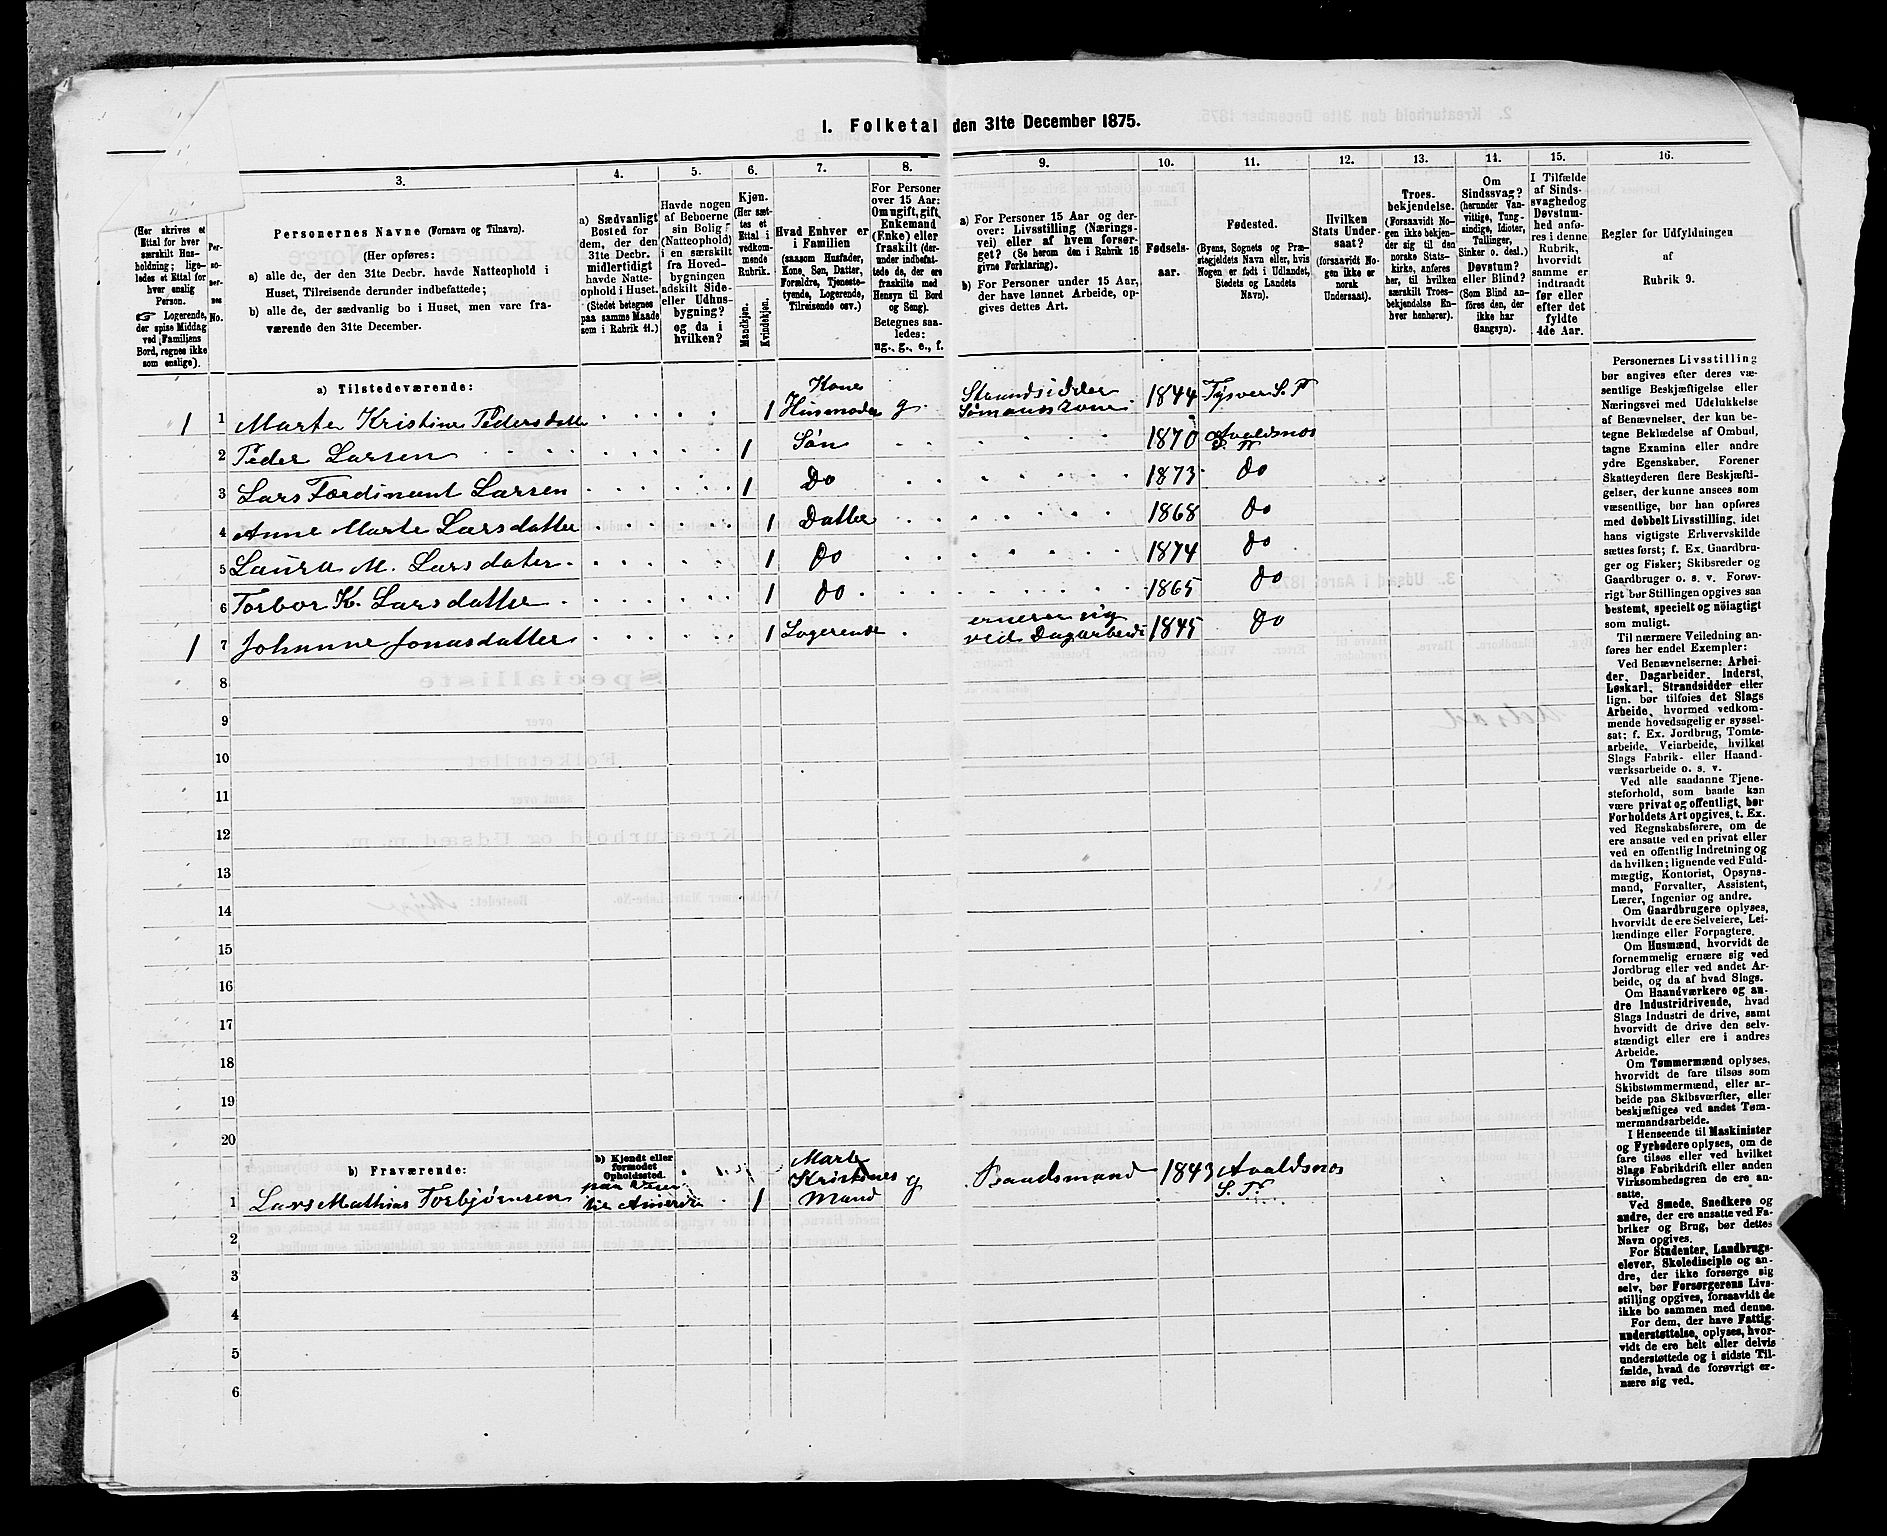 1. Folketal den 31te December 1875.
3.
4.
5.
6.
7.
8.
9.
10.
11.
12.
13.
14.
15.
16.
(Her skrives et
Ettal for hver
særskilt Hus-
holdning; lige-
ledes et Ettal for
hver enslig
Person.
☞ Logerende,
der spise Middag
ved Familiens
Bord, regnes ikke
som enslige).
Per-
so-
ner-
nes
No.
Personernes Navne (Fornavn og Tilnavn).
(Her opføres:
a) alle de, der den 31te Decbr. havde Natteophold i
Huset, Tilreisende derunder indbefattede;
b) alle de, der sædvanlig bo i Huset, men vare fra-
værende den 31te December.
a) Sædvanligt
Bosted for
dem, der den
31te Decbr.
midlertidigt
havde Natte-
ophold i Huset.
(Stedet betegnes
paa samme Maade
som i Rubrik 11.)
Havde nogen
af Beboerne
sin Bolig
(Natteophold)
i en særskilt
fra Hoved-
bygningen
adskilt Side-
eller Udhus-
bygning?
og da i
hvilken?
Kjøn.
(Her sæt-
tes et
Ettal i
vedkom-
mende
Rubrik.
Mandkjøn.
Kvindekjøn.
Hvad Enhver er
i Familien
(saasom Husfader,
Kone, Søn, Datter,
Forældre, Tjeneste-
tyende, Logerende,
Tilreisende osv.)
For Personer
over 15 Aar:
Om ugift, gift,
Enkemand
(Enke) eller
fraskilt (der-
under indbefat-
tede de, der ere
fraskilte med
Hensyn til Bord
og Seng).
Betegnes saa-
ledes:
ug., g., e., f.
a) For Personer 15 Aar og der-
over: Livsstilling (Nærings-
vei) eller af hvem forsør-
get? (Se herom den i Rubrik 16
givne Forklaring).
b) For Personer under 15 Aar,
der have lønnet Arbeide, op-
gives dettes Art.
Fødsels-
aar.
Fødested.
(Byens, Sognets og Præ-
stegjeldets Navn eller, hvis
Nogen er født i Udlandet,
Stedets og Landets
Navn).
Hvilken
Stats Under-
saat?
(forsaavidt No-
gen ikke er
norsk
Undersaat).
Troes-
bekjendelse.
(Forsaavidt No-
gen ikke bekjen-
der sig til den
norske Stats-
kirke, anføres
her, til hvilken
særskilt Troes-
bekjendelse En-
hver henhører).
Om
Sindssvag?
(herunder Van-
vittige, Tung-
sindige, Idioter,
Tullinger,
Sinker o. desl.)
Døvstum?
eller Blind?
(Som Blind an-
føres den, der
ikke har
Gangsyn).
I Tilfælde
af Sinds-
svaghed og
Døvstum-
hed anfø-
res i denne
Rubrik,
hvorvidt
samme er
indtraadt
før eller
efter det
fyldte
4de Aar.
Regler for Udfyldningen
af
Rubrik 9.
a) Tilstedeværende:
1 1 Marte Kristine Pedersdatter 1 Kone Husmoder g. Strandsidder Sømands kone 1844 Tysver S. P.
2 Peder Larsen 1 Søn 1870 Avaldsnes S. P.
3 Lars Ferdinant Larsen 1 Do 1873 do
4 Anne Marte Larsdatter 1 Datter 1868 do
5 Laura M. Larsdatter 1 do 1874 do
6 Torbor K. Larsdatter 1 do 1865 do
1 7 Johanne Jonasdatter 1 Logerende ernerer sig ved Dagarbeide 1845 do
8
9
10
11
12
13
14
15
16
17
18
19
20
b) Fraværende:
b) Kjendt eller
formodet
Opholdssted.
1 Lars Mathias Torbjørnsen paa til Amerika 1 Marte Kristines Mand g Baadsmand 1843 Avaldsnes S. P.
2
3
4
5
6
Personernes Livsstilling
bør angives efter deres væ-
sentlige Beskjæftigelse eller
Næringsvei med Udelukkelse
af Benævnelser, der kun be-
tegne Beklædelse af Ombud,
tagne Examina eller andre
ydre Egenskaber. Forener
Skatteyderen flere Beskjæfti-
gelser, der kunne ansees som
væsentlige, bør han opføres
med dobbelt Livsstilling, idet
hans vigtigste Erhvervskilde
sættes først; f. Ex. Gaardbru-
ger og Fisker; Skibsreder og
Gaardbruger o. s. v. Forøv-
rigt bør Stillingen opgives saa
bestemt, specielt og nöiagtigt
som muligt.
Til nærmere Veiledning an-
føres her endel Exempler:
Ved Benævnelserne: Arbei-
der, Dagarbeider, Inderst,
Løskarl, Strandsidder eller
lign. bør tilføies det Slags
Arbeide, hvormed vedkom-
mende hovedsagelig er syssel-
sat; f. Ex. Jordbrug, Tomte-
arbeide, Veiarbeide, hvilket
Slags Fabrik- eller Haand-
værksarbeide o. s. v.
Ved alle saadanne Tjene-
steforhold, som baade kan
være privat og offentligt, bør
Forholdets Art opgives, t. Ex.
ved Regnskabsførere, om de
ere ansatte ved en privat eller
ved en offentlig Indretning og
da hvilken; lignende ved Fuld-
mægtig, Kontorist, Opsyns-
mand, Forvalter, Assistent,
Lærer, Ingeniør og andre.
Om Gaardbrugere oplyses,
hvorvidt de ere Selveiere, Lei-
lændinge eller Forpagtere.
Om Husmænd, hvorvidt de
fornemmelig ernære sig ved
Jordbrug eller ved andet Ar-
beide, og da af hvad Slags.
Om Haandværkere og an-
dre Industridrivende, hvad
Slags Industri de drive, samt
hvorvidt de drive den selv-
stændigt eller ere i andres
Arbeide.
Om Tømmermænd oplyses,
hvorvidt de fare tilsøs som
Skibstømmermænd, eller ar-
beide paa Skibsværfter, eller
beskjæftiges ved andet Tøm-
mermandsarbeide.
I Henseende til Maskinister
og Fyrbødere oplyses, om de
fare tilsøs eller ved hvilket
Slags Fabrikdrift eller anden
Virksomhedsgren de ere an-
satte.
Ved Smede, Snedkere og
andre, der ere ansatte ved Fa-
briker og Brug, bør dettes
Navn opgives.
For Studenter, Landbrugs-
elever, Skoledisciple og an-
dre, der ikke forsørge sig
selv, bør Forsørgerens Livs-
stilling opgives, forsaavidt de
ikke bo sammen med denne.
For dem, der have Fattig-
understøttelse, oplyses, hvor-
vidt de ere helt eller delvis
understøttede og i sidste Til-
fælde, hvad de forøvrigt er-
nære sig ved.